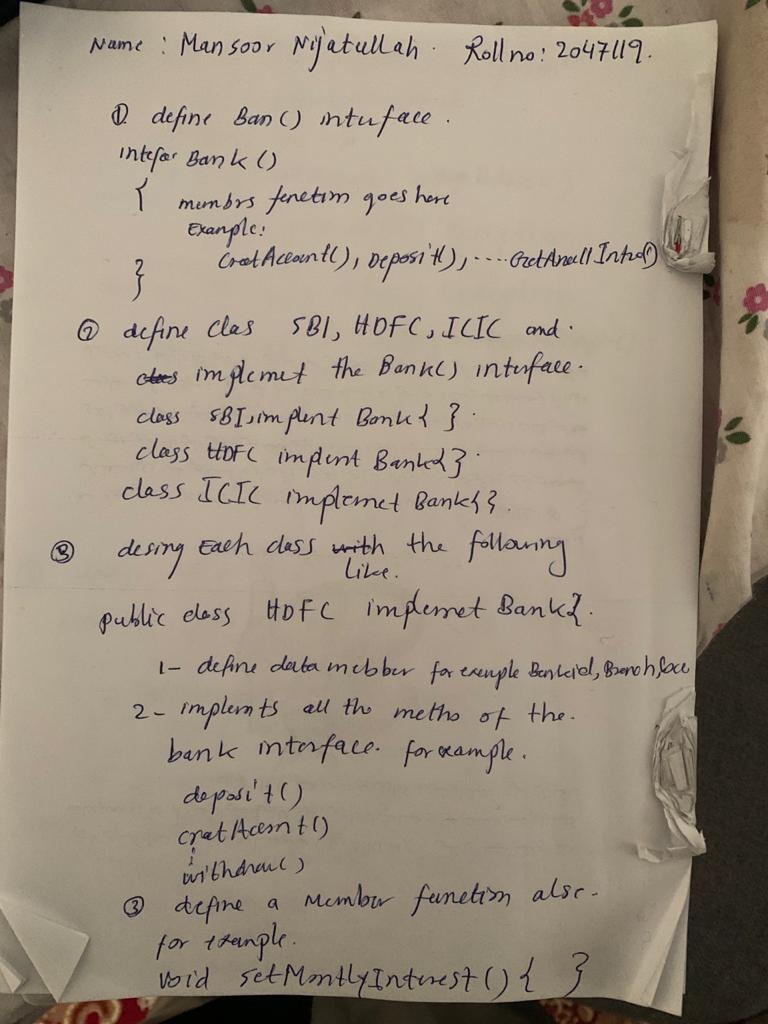 Name : Mansoor Nijatullah. Roll no: 2047119.
① define Ban() intuface.
intefar Bank ()
{ mumbrs fenetim goes here
Example:
CreatAccount(), Deposit(), ....
}
② define clas SBI, HDFC, ICIC and.
implemet the Bank() interface.
class SBI, implent Bank{ }.
class HDFC implent Bank{}.
class ICIC implemet Bank{}.
③ desing Each class with the following
like.
public class HDFC implemet Bank{.
1- define data mebber for example Bankid,
2- implemts all the metho of the.
bank interface. for example.
deposit()
cratAcent()
withdraw()
③ define a Member function also.
for example.
void setMontlyInterest() { }